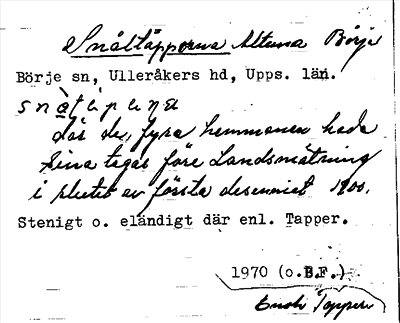 Snåltäpporna Altuna Börje
Börje sn, Ulleråkers hd, Upps. län.
där de fyra hemmanen hade
sina tegar före Landsmätning
i slutet av första decenniet 1900.
Stenigt o. eländigt där enl. Tapper.
1970 (o.B.F.)
Tapper